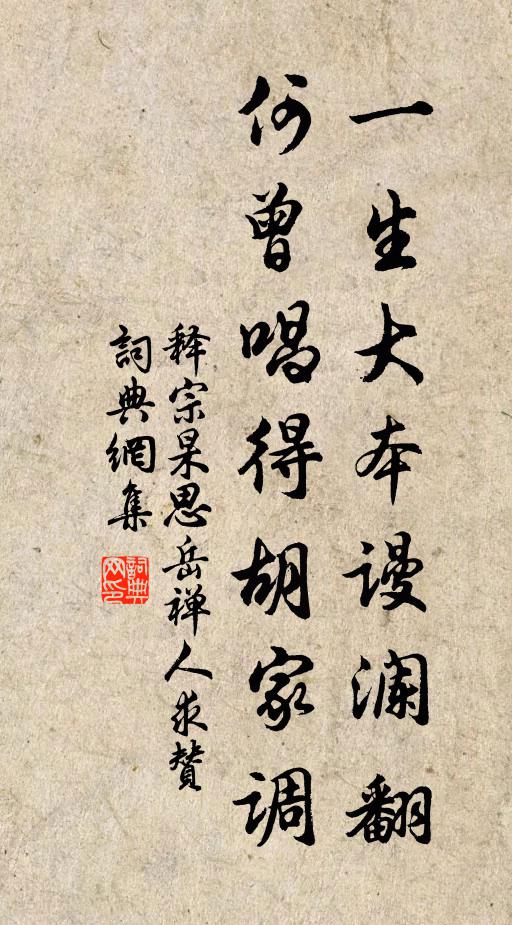 一生大本谩澜翻
何曾唱得胡家调
释宗杲思岳禅人求賛
詞典網集
詞典网印